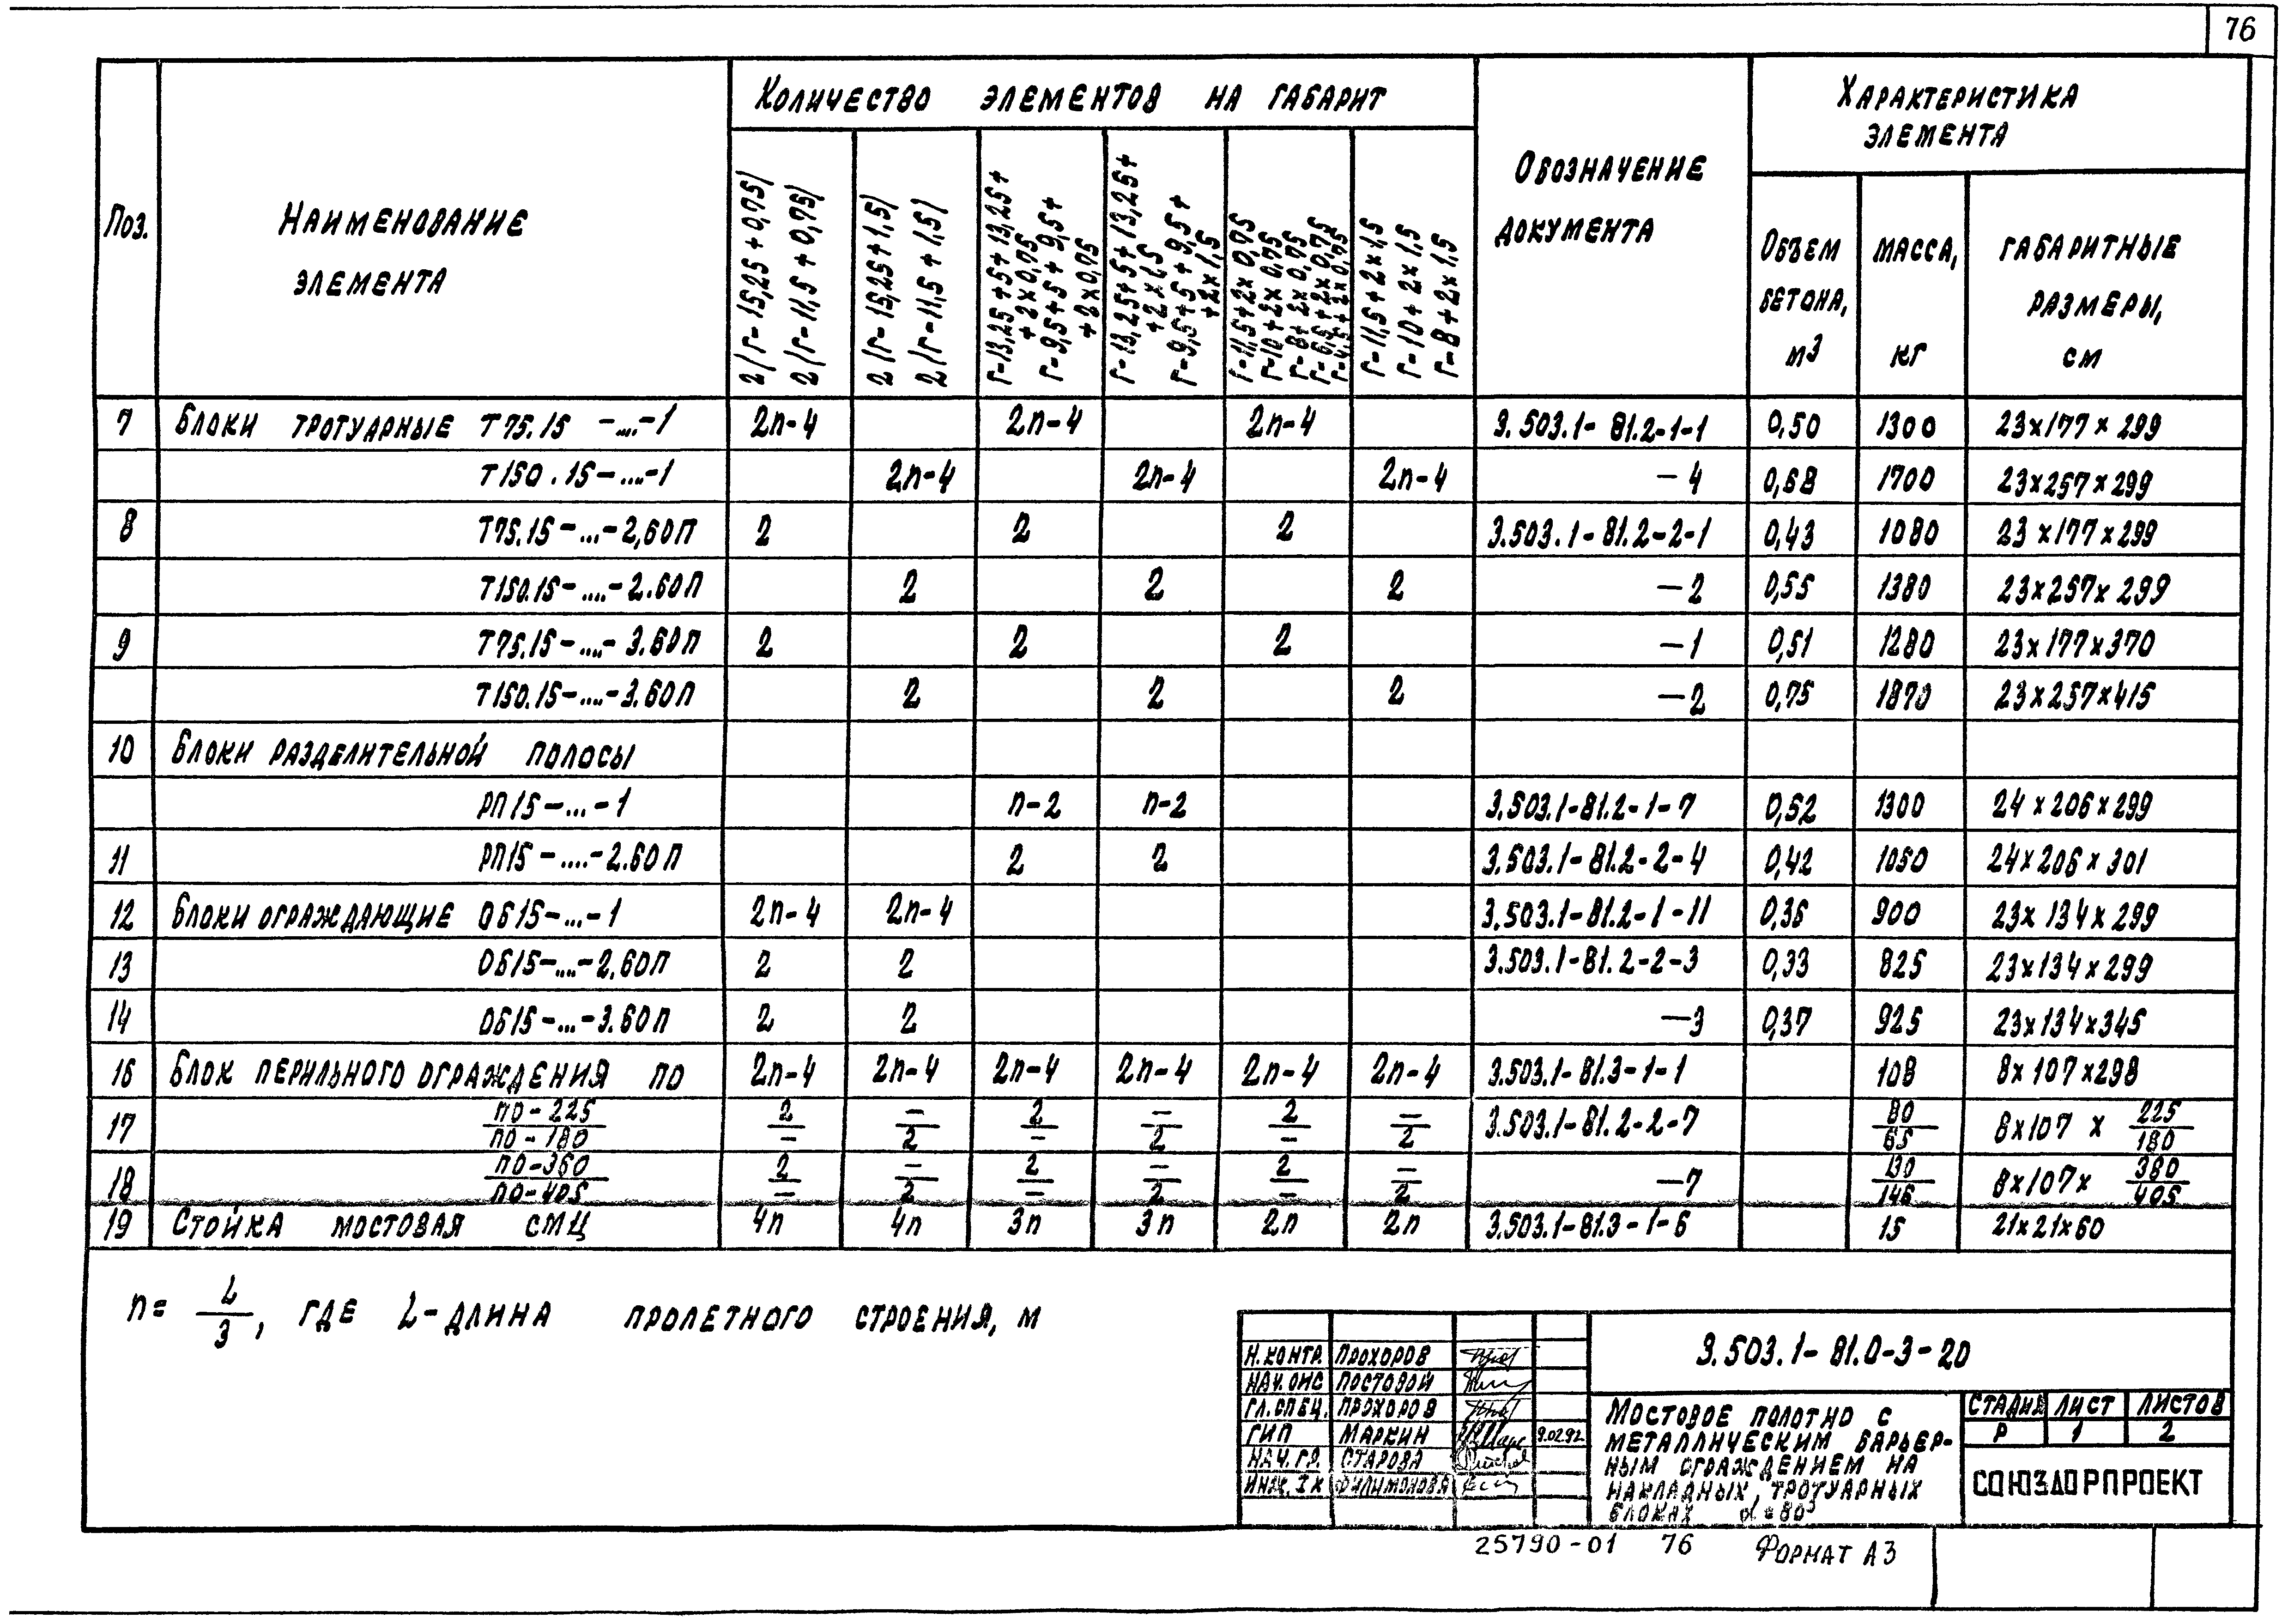 76
Поз.
Наименование элемента
Количество элементов на габарит
Обозначение документа
Характеристика элемента
2(Г-15,25+0,75)
2(Г-11,5+0,75)
2(Г-15,25+1,5)
2(Г-11,5+1,5)
Г-13,25+5+13,25+
+2×0,75
Г-9,5+5+9,5+
+2×0,75
Г-13,25+5+13,25+
+2×1,5
Г-9,5+5+9,5+
+2×1,5
Г-11,5+2×0,75
Г-10+2×0,75
Г-8+2×0,75
Г-6,5+2×0,75
Г-4,5+2×0,75
Г-11,5+2×1,5
Г-10+2×1,5
Г-8+2×1,5
Объем бетона, м3
Масса, кг
Габаритные размеры, см
7 Блоки тротуарные Т75.15-....-1 2п-4 2п-4 2п-4 3.503.1-81.2-1-1 0,50 1300 23×177×299
Т150.15-....-1 2п-4 2п-4 2п-4 -4 0,68 1700 23×257×299
8 Т75.15-...-2,60П 2 2 2 3.503.1-81.2-2-1 0,43 1080 23×177×299
Т150.15-....-2.60П 2 2 2 -2 0,55 1380 23×257×299
9 Т75.15-....-3.60П 2 2 2 -1 0,51 1280 23×177×370
Т150.15-....-3.60П 2 2 2 -2 0,75 1870 23×257×415
10 Блоки разделительной полосы
РП15-...-1 п-2 п-2 3.503.1-81.2-1-7 0,52 1300 24×206×299
11 РП15-....-2.60П 2 2 3.503.1-81.2-2-4 0,42 1050 24×206×301
12 Блоки ограждающие ОБ15-...-1 2п-4 2п-4 3.503.1-81.2-1-11 0,36 900 23×134×299
13 ОБ15-....-2.60П 2 2 3.503.1-81.2-2-3 0,33 825 23×134×299
14 ОБ15-...-3.60П 2 2 -3 0,37 925 23×134×345
16 Блок перильного ограждения ПО 2п-4 2п-4 2п-4 2п-4 2п-4 2п-4 3.503.1-81.3-1-1 108 8×107×298
17 ПО-225/ПО-180 2/- -/2 2/- -/2 2/- -/2 3.503.1-81.2-2-7 80/65 8×107×225/180
18 ПО-360/ПО-405 2/- -/2 2/- -/2 2/- -/2 -7 130/146 8×107×360/405
19 Стойка мостовая СМЦ 4п 4п 3п 3п 2п 2п 3.503.1-81.3-1-6 15 21×21×60
п= L/3, где L-длина пролетного строения, м
Н.контр. Прохоров
Нач. ОИС Постовой
Гл.спец. Прохоров
ГИП Маркин 9.02.92
Нач.гр. Старова
Инж. I к Филимонова
3.503.1-81.0-3-20
Мостовое полотно с
металлическим барьер-
ным ограждением на
накладных тротуарных
блоках α=80°
Стадия Лист Листов
Р 1 2
СОЮЗДОРПРОЕКТ
25790-01 76 Формат А3